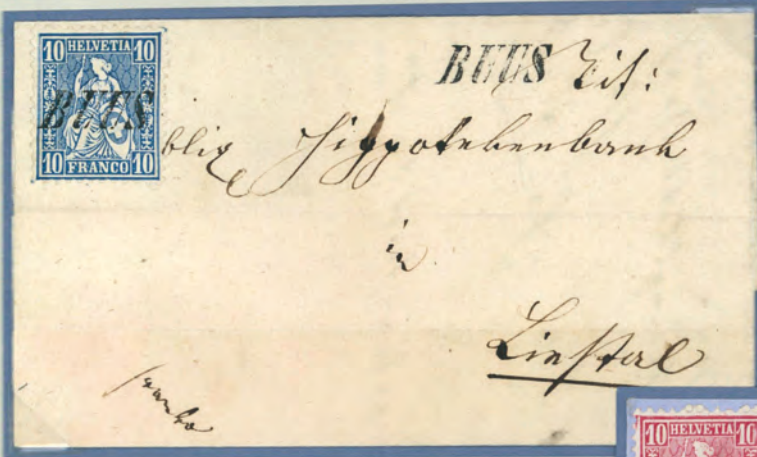 10 HELVETIA 10
BUUS
10 FRANCO 10
BUUS Tit:
Hÿppotekenbank
in
Liestal
franko
10 HELVETIA 10